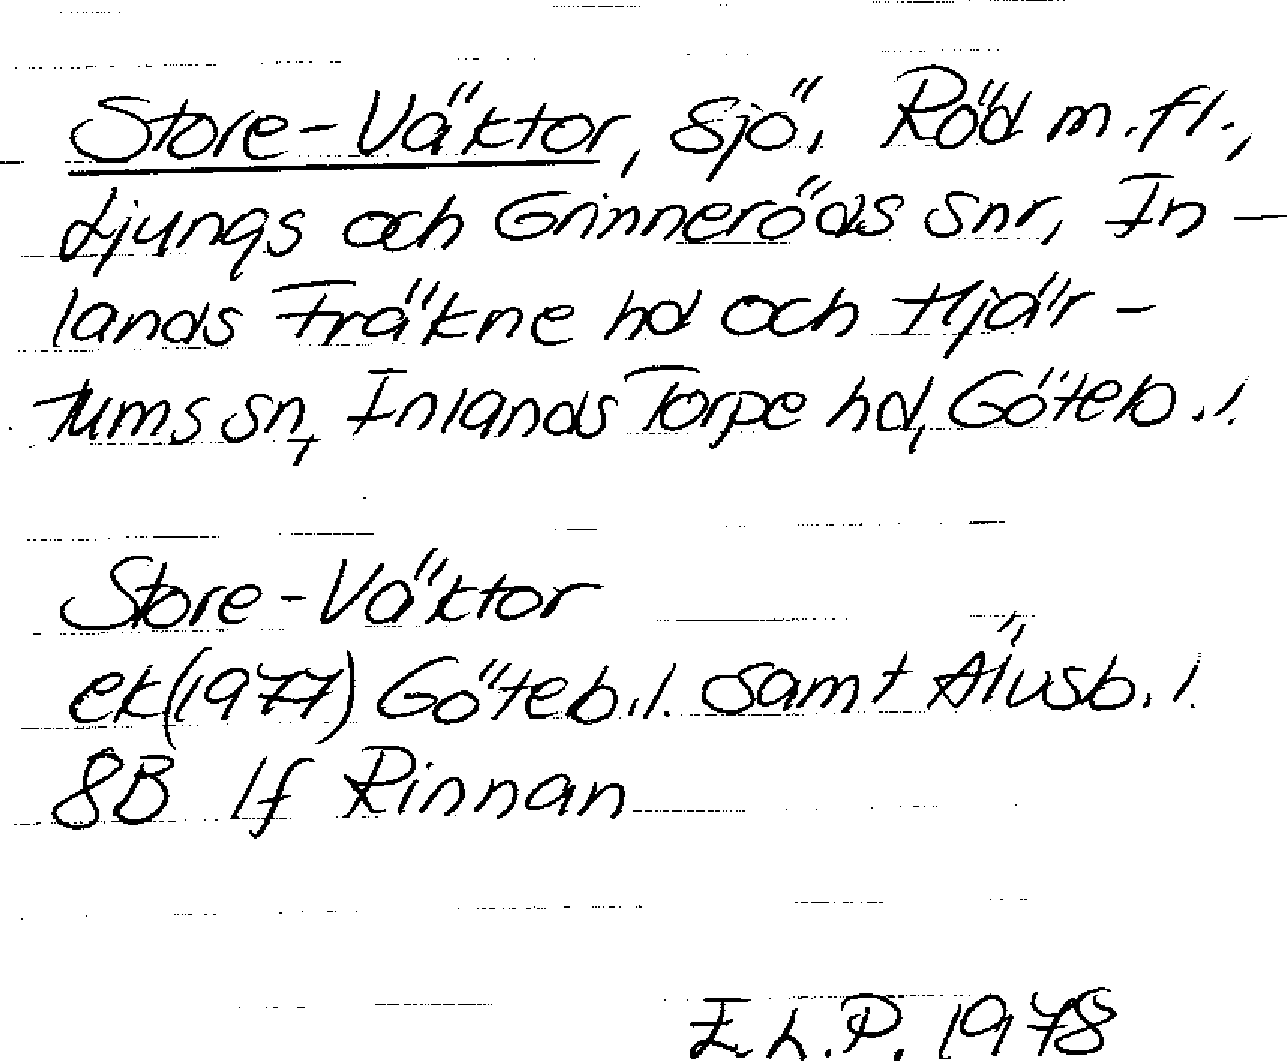 Store-Väktor, sjö, Röd m.fl.,
Ljungs och Grinneröds snr, In-
lands Fräkne hd och Hjär-
tums sn, Inlands Torpe hd, Göteb.l.
Store-Väktor
ek(1977) Göteb.l. samt Älvsb.l.
8B 1f Rinnan
E.L.P. 1978